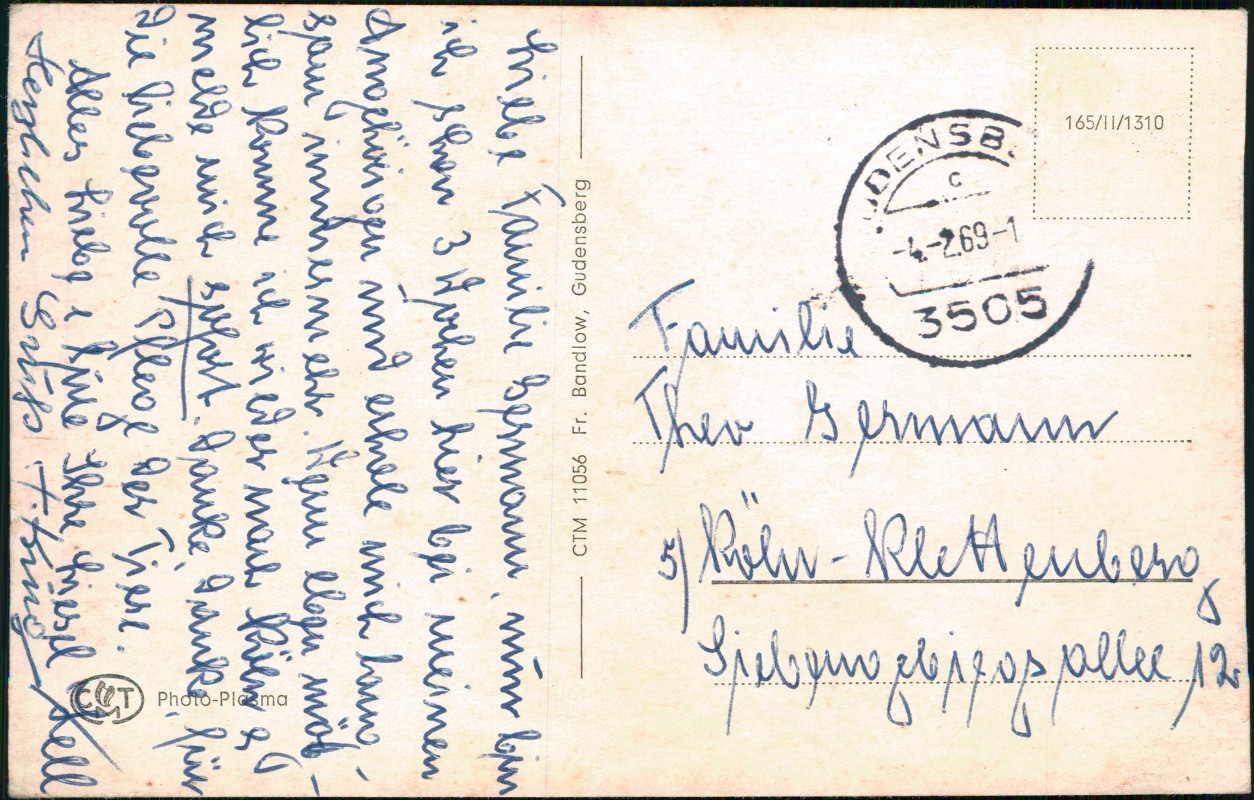 Liebe Familie Germann, nun bin
ich schon 3 Wochen hier bei meinen
Angehörigen und erhole mich lang-
sam immer mehr. Wenn eben mög-
lich komme ich wieder nach Köln &
melde mich sofort. Danke, Danke, für
die liebevolle Pflege der Tiere.
Alles Liebe & Gute Ihre Liesel
Herzlichen Gruß
CTM 11056 Fr. Bandlow, Gudensberg
Photo-Plasma
165/II/1310
UDENSB
c
-4.-2.69-1
3505
Familie
Theo Germann
5/ Köln-Klettenberg
Siebengebirgsallee 12